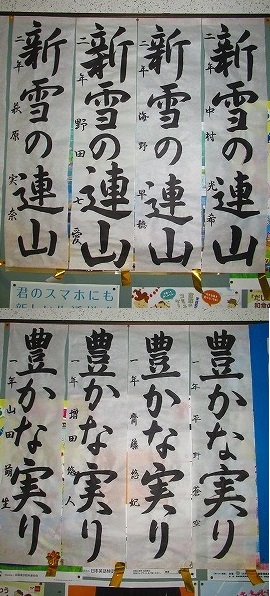 新雪の連山
二年 中村 光希
新雪の連山
二年 海野 早穂
新雪の連山
二年 野田 七愛
新雪の連山
二年 萩原 実奈
君のスマホにも
豊かな実り
一年 平野 蒼空
豊かな実り
一年 齋藤 悠妃
豊かな実り
一年 増田 悠人
豊かな実り
一年 山田
日本英語検定